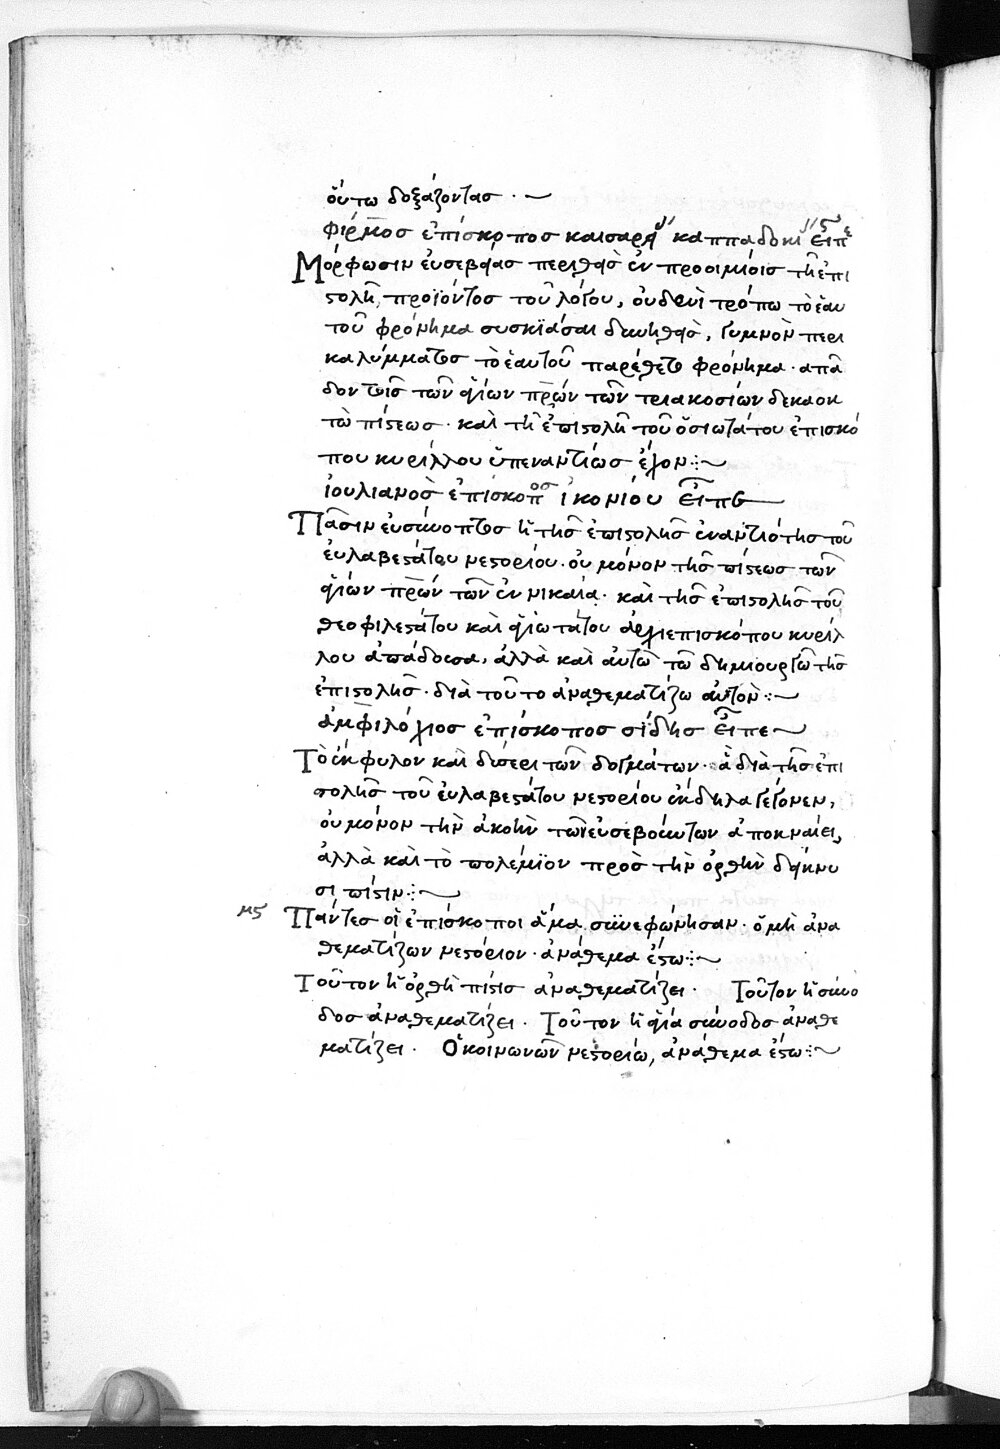 οὕτω δοξάζοντασ · ~
φίρμοσ ἐπίσκοποσ καισαρεί καππαδοκί εἶπε
Μόρφωσιν ἐυσεβείασ περιθεὶσ ἐν προοιμίοισ τῆ ἐπι
στολῆ, προϊόντοσ τοῦ λόγου, ὀυδενὶ τρόπω τὸ ἑαυ
τοῦ φρόνημα συσκϊάσαι δυνηθεὶσ, γυμνὸν περι
καλύμματοσ τὸ ἑαυτοῦ παρέθετο φρόνημα · απᾶ
δον τοῖσ τῶν ἁγίων πρων τῶν τριακοσίων δεκαοκ
τὼ πίστεωσ · καὶ τῆ ἐπιστολῆ τοῦ ὁσιωτάτου ἐπισκό
που κυρίλλου ὑπεναντίωσ ἔχον :~
ἰουλιανὸσ ἐπίσκοποσ ἰκονίου εἶπε
Πᾶσιν ἐυσύνοπτοσ ἡ τῆσ ἐπιστολῆσ ἐναντιότησ τοῦ
ἐυλαβεστάτου νεστορίου · ὀυ μόνον τῆσ πίστεωσ τῶν
ἁγίων πρων τῶν ἐν νικαία · καὶ τῆσ ἐπιστολῆσ τοῦ
θεοφιλεστάτου καὶ ἁγιωτάτου ἀρχιεπισκόπου κυρίλ
λου ἀπάδουσα, ἀλλὰ καὶ ἀυτῶ τῶ δημιουργῶ τῆσ
ἐπιστολῆσ · διὰ τοῦτο ἀναθεματίζω ἀυτὸν :~
ἀμφιλόχιοσ ἐπίσκοποσ σίδησ εἶπε ~
Τὸ ἔκφυλον καὶ δύσερι τῶν δογμάτων · ἃ διὰ τῆσ ἐπι
στολῆσ τοῦ ἐυλαβεστάτου νεστορίου ἔκδηλα γέγονεν,
ὀυ μόνον τὴν ἀκοὴν τῶν ἐυσεβούντων ἀποκναίει,
ἀλλὰ καὶ τὸ πολέμϊον πρὸσ τὴν ὀρθὴν δείκνυ
σι πίστιν :~
μϛ Πάντεσ οἱ ἐπίσκοποι ἅμα συνεφώνησαν · ὁ μὴ ἀνα
θεματίζων νεστόριον · ἀνάθεμα ἔστω :~
Τοῦτον ἡ ὀρθὴ πίστισ ἀναθεματίζει · Τοῦτον ἡ σύνο
δοσ ἀναθεματίζει · Τοῦτον ἡ ἁγία σύνοδοσ ἀναθε
ματίζει · Ὁ κοινωνῶν νεστορίω, ἀνάθεμα ἔστω :~